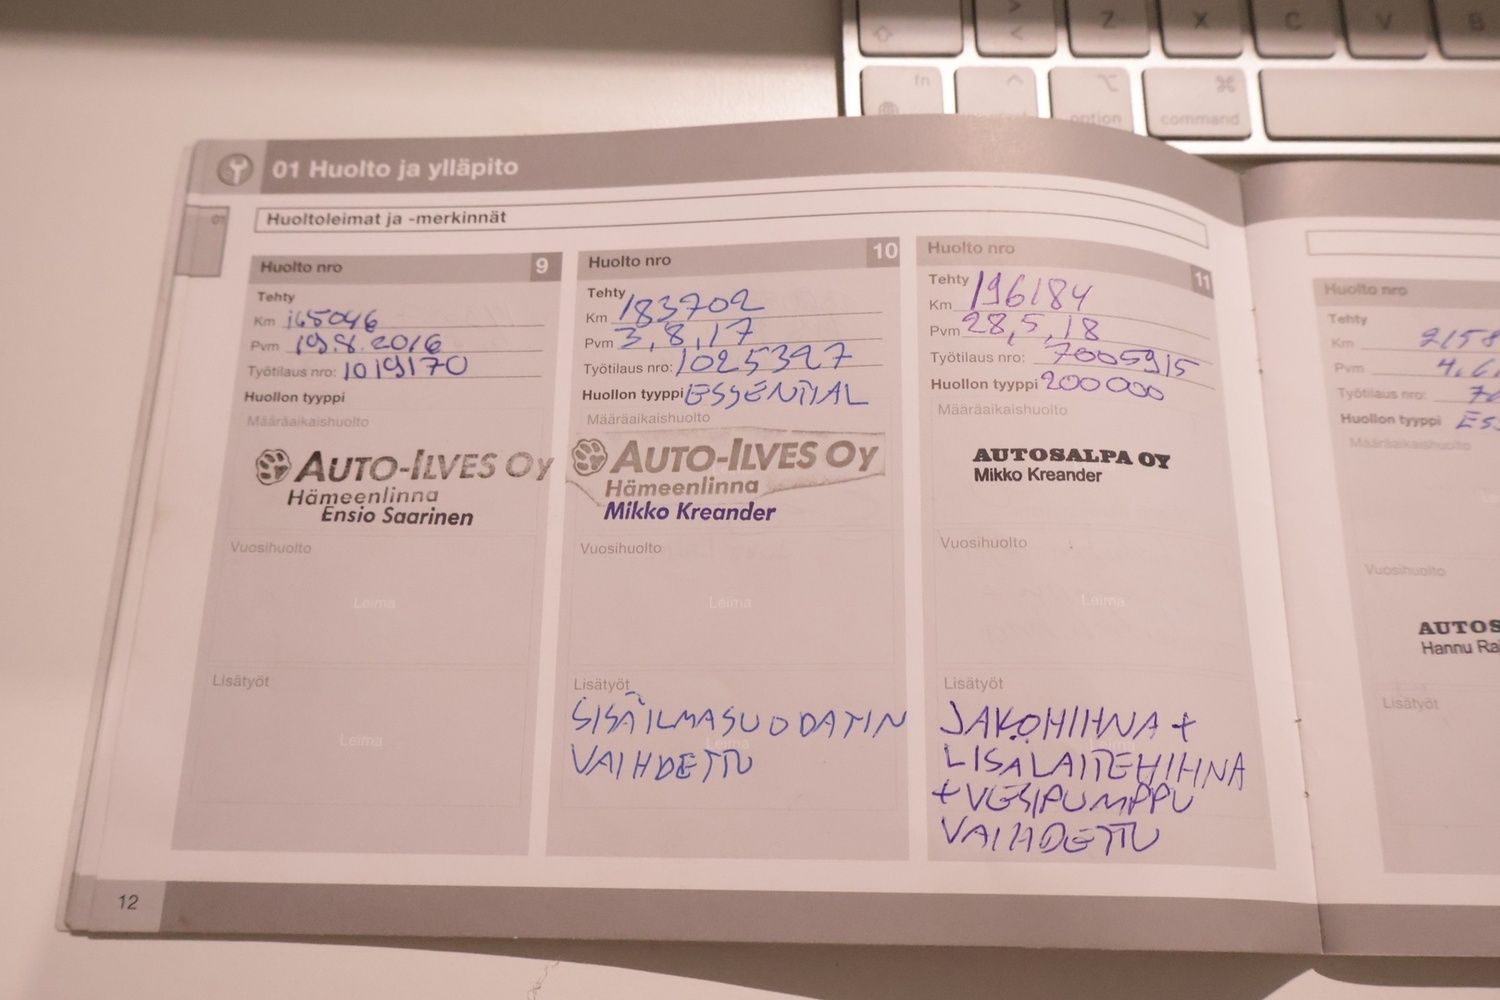 Z X C V B
fn
option command
01 Huolto ja ylläpito
01
Huoltoleimat ja -merkinnät
Huolto nro 9
Tehty
Km 165046
Pvm 19.8.2016
Työtilaus nro: 1019170
Huollon tyyppi
Määräaikaishuolto
AUTO-ILVES OY
Hämeenlinna
Ensio Saarinen
Vuosihuolto
Leima
Lisätyöt
Leima
Huolto nro 10
Tehty
Km 183702
Pvm 3,8,17
Työtilaus nro: 1025327
Huollon tyyppi ESSENTIAL
Määräaikaishuolto
AUTO-ILVES OY
Hämeenlinna
Mikko Kreander
Vuosihuolto
Leima
Lisätyöt
SISÄILMASUODATIN
VAIHDETTU
Huolto nro 11
Tehty
Km 196184
Pvm 28,5,18
Työtilaus nro: 7005915
Huollon tyyppi 200000
Määräaikaishuolto
AUTOSALPA OY
Mikko Kreander
Vuosihuolto
Leima
Lisätyöt
JAKOHIHNA +
LISALAITEHIHNA
+ VESIPUMPPU
VAIHDETTU
Huolto nro
Tehty
Km 2158
Pvm 4.6.
Työtilaus nro: 70
Huollon tyyppi ESS
Määräaikaishuolto
Vuosihuolto
AUTOS
Hannu Ra
Lisätyöt
12